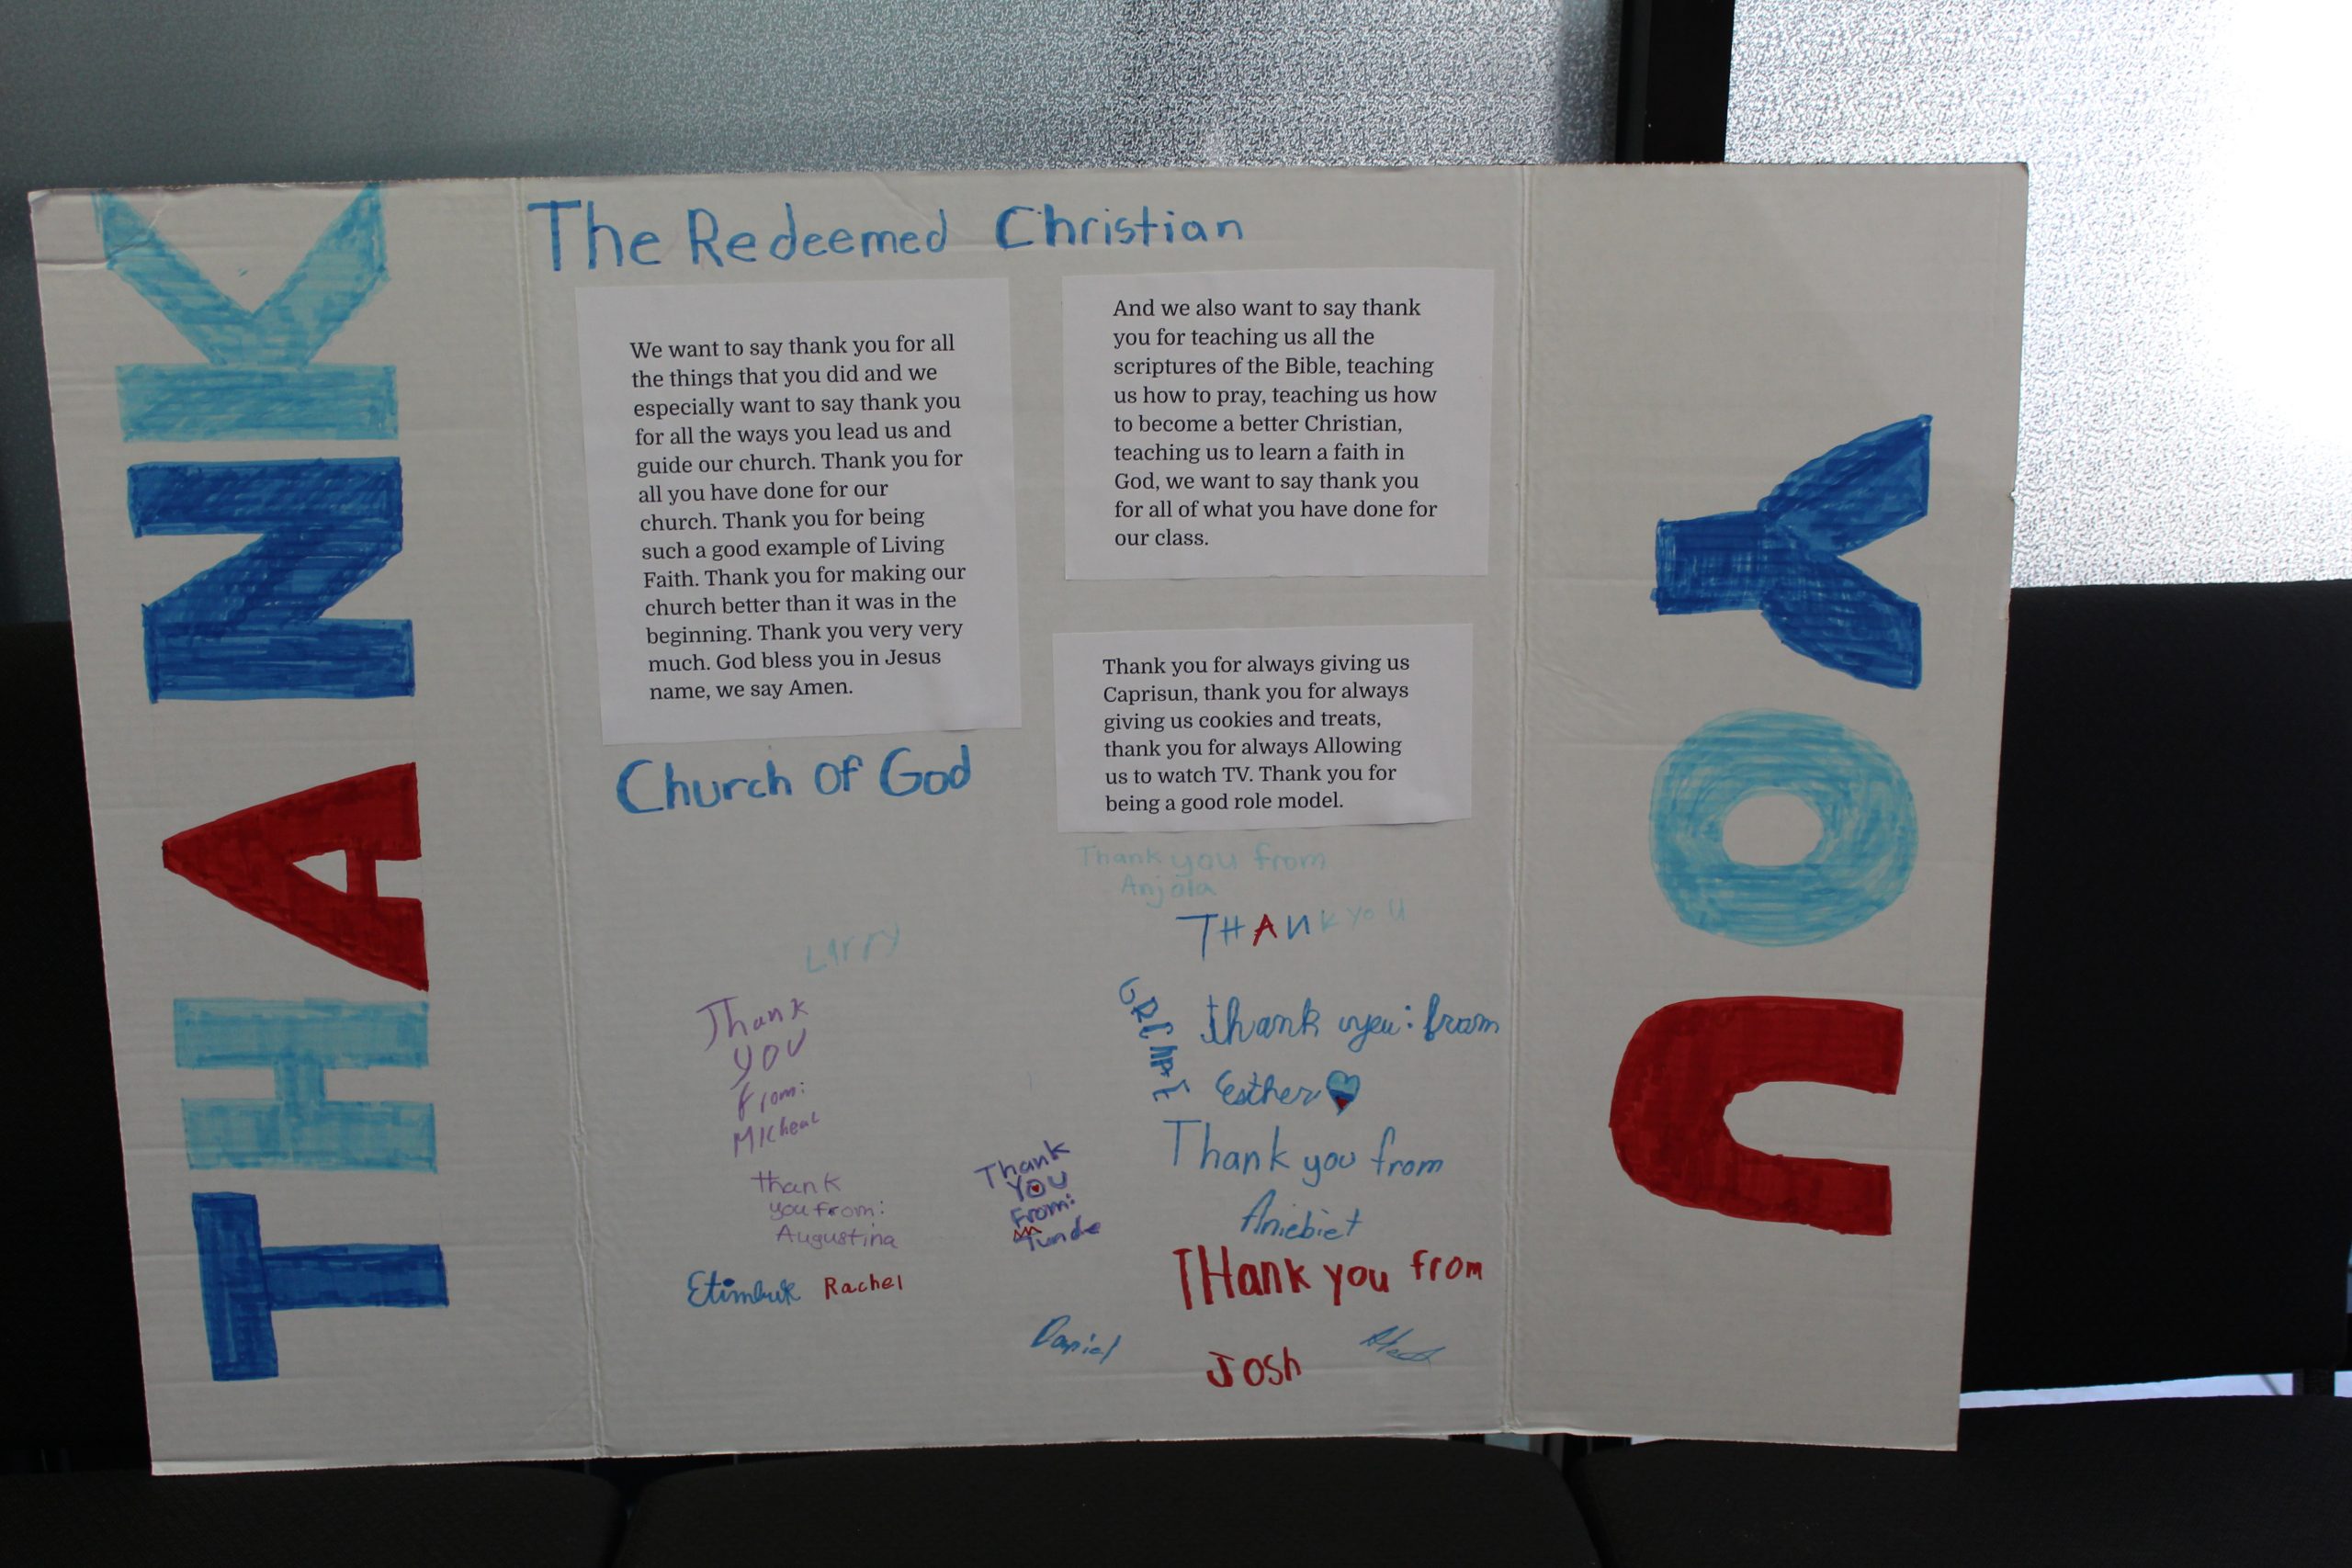 THANK
The Redeemed Christian
We want to say thank you for all
the things that you did and we
especially want to say thank you
for all the ways you lead us and
guide our church. Thank you for
all you have done for our
church. Thank you for being
such a good example of Living
Faith. Thank you for making our
church better than it was in the
beginning. Thank you very very
much. God bless you in Jesus
name, we say Amen.
Church Of God
And we also want to say thank
you for teaching us all the
scriptures of the Bible, teaching
us how to pray, teaching us how
to become a better Christian,
teaching us to learn a faith in
God, we want to say thank you
for all of what you have done for
our class.
Thank you for always giving us
Caprisun, thank you for always
giving us cookies and treats,
thank you for always Allowing
us to watch TV. Thank you for
being a good role model.
Larry
Thank
you
from:
Micheal
thank
you from:
Augustina
Etimbuk Rachel
Thank
You
From:
Tunde
Daniel
Thank you from
Anjola
THANK YOU
thank you: from
Esther
Thank you from
Aniebiet
THank you from
Josh
YOU